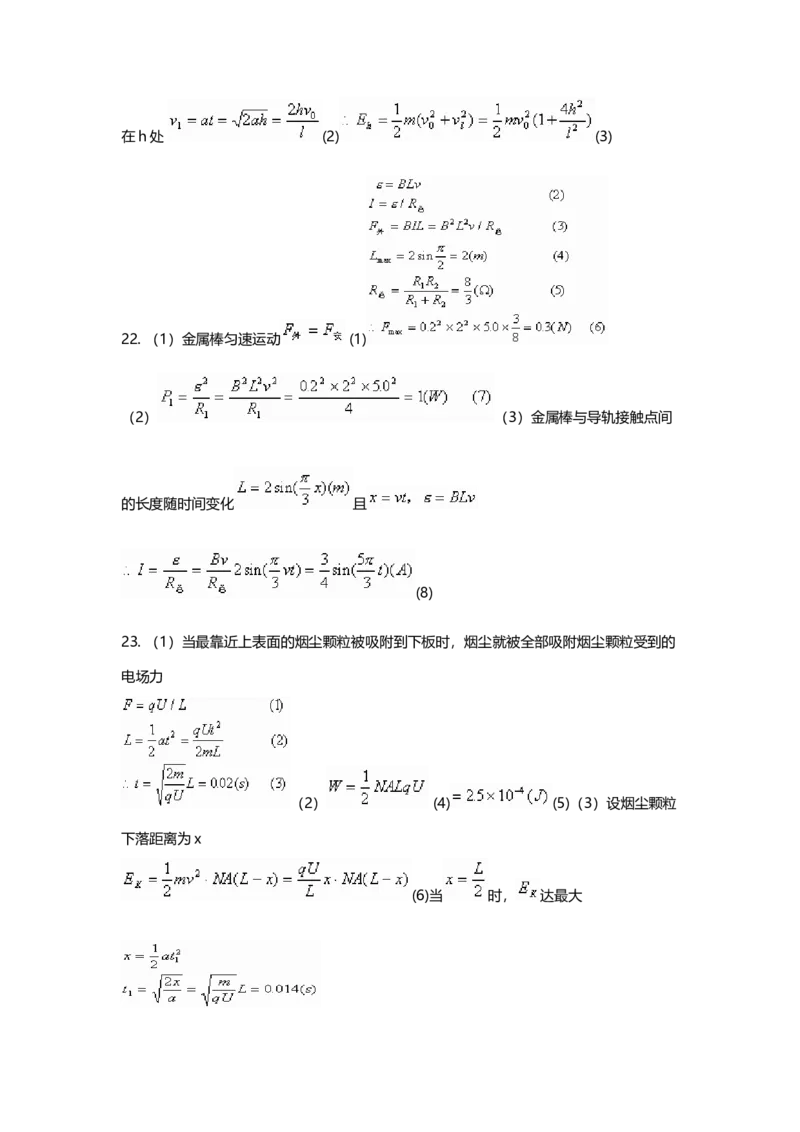 在 h 处 v₁ = at = √(2ah) = 2hv₀/l (2) ∴ E_k = 1/2 m(v₀² + v_l²) = 1/2 mv₀²(1 + 4h²/l²) (3)
ε = BLv
I = ε / R总 (2)
F外 = BIL = B²L²v / R总 (3)
L_max = 2 sin π/2 = 2(m) (4)
R总 = R₁R₂/(R₁ + R₂) = 8/3 (Ω) (5)
22. （1）金属棒匀速运动 F外 = F安 (1) ∴ F_max = 0.2² × 2² × 5.0 × 3/8 = 0.3(N) (6)
（2） P₁ = ε²/R₁ = B²L²v²/R₁ = 0.2² × 2² × 5.0²/4 = 1(W) (7) （3）金属棒与导轨接触点间
的长度随时间变化 L = 2 sin(π/3 x)(m) 且 x = vt， ε = BLv
∴ I = ε/R总 = Bv/R总 2 sin(π/3 vt) = 3/4 sin(5π/3 t)(A) (8)
23. （1）当最靠近上表面的烟尘颗粒被吸附到下板时，烟尘就被全部吸附烟尘颗粒受到的
电场力
F = qU / L (1)
L = 1/2 at² = qUt²/2mL (2)
∴ t = √(2m/qU) L = 0.02(s) (3) （2） W = 1/2 NALqU (4) = 2.5×10⁻⁴ (J) (5)（3）设烟尘颗粒
下落距离为 x
E_K = 1/2 mv² · NA(L − x) = qU/L x · NA(L − x) (6)当 x = L/2 时， E_K 达最大
x = 1/2 at₁²
t₁ = √(2x/a) = √(m/qU) L = 0.014(s)